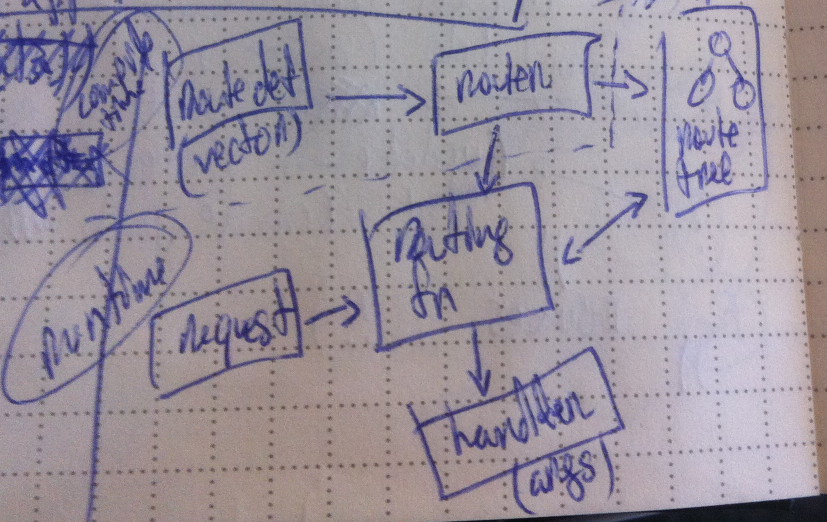 compile
time
route def
(vector)
router
route
tree
runtime
request
routing
fn
handler
(args)